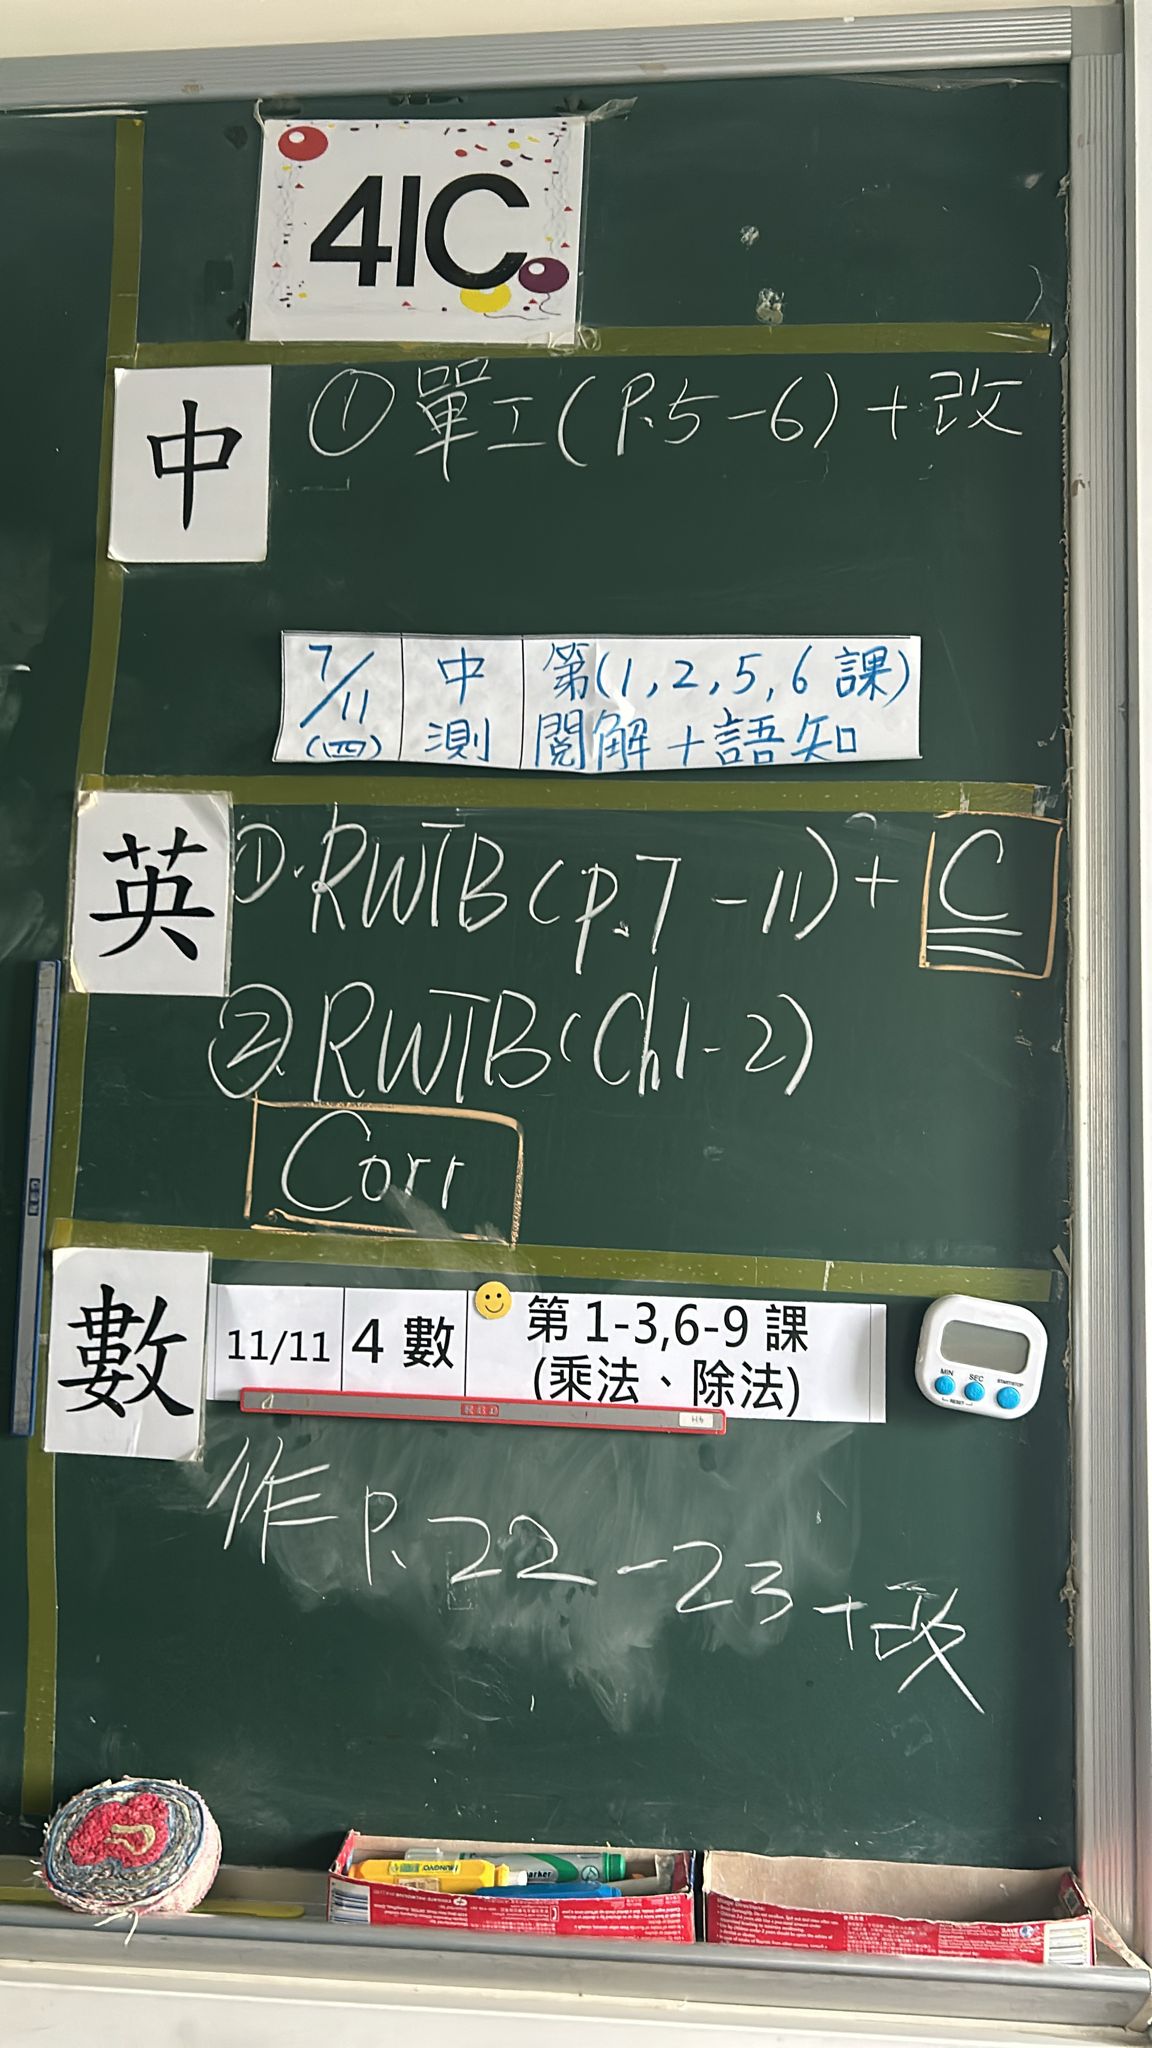 4IC
中
① 單工(P.5-6)+改
7/11 (四)
中測
第(1,2,5,6課)
閱解+語知
英
①.RWTB(p.7-11)+ C
②.RWTB(Ch1-2)
Corr
數
11/11
4 數
第 1-3,6-9 課
(乘法、除法)
MIN
SEC
START/STOP
RESET
作 P.22-23+改
MUNGYO
marker